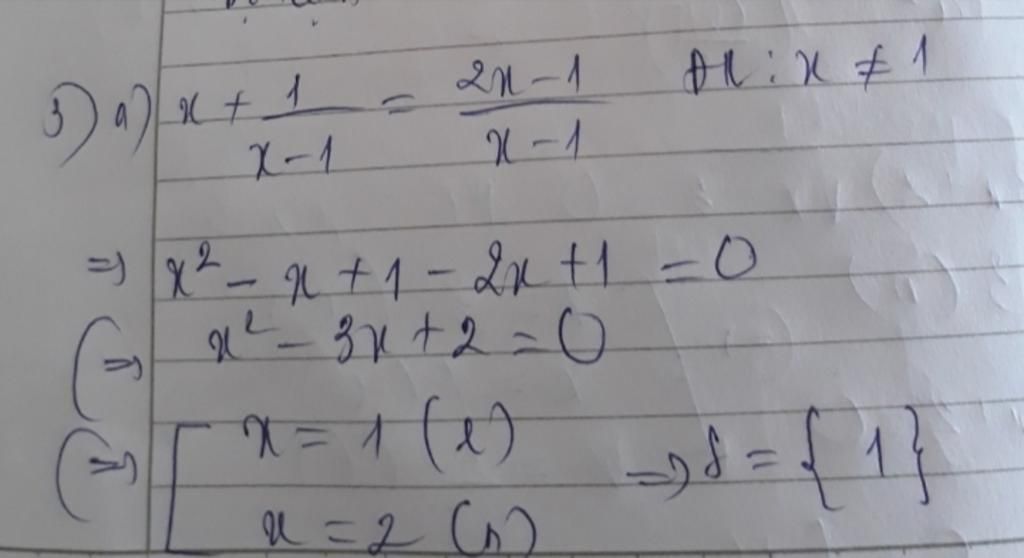 3) a) x + 1/(x-1) = (2x-1)/(x-1) ĐK: x ≠ 1
=> x² - x + 1 - 2x + 1 = 0
(=> x² - 3x + 2 = 0
(=> [ x = 1 (l)
x = 2 (n) => S = { 1 }